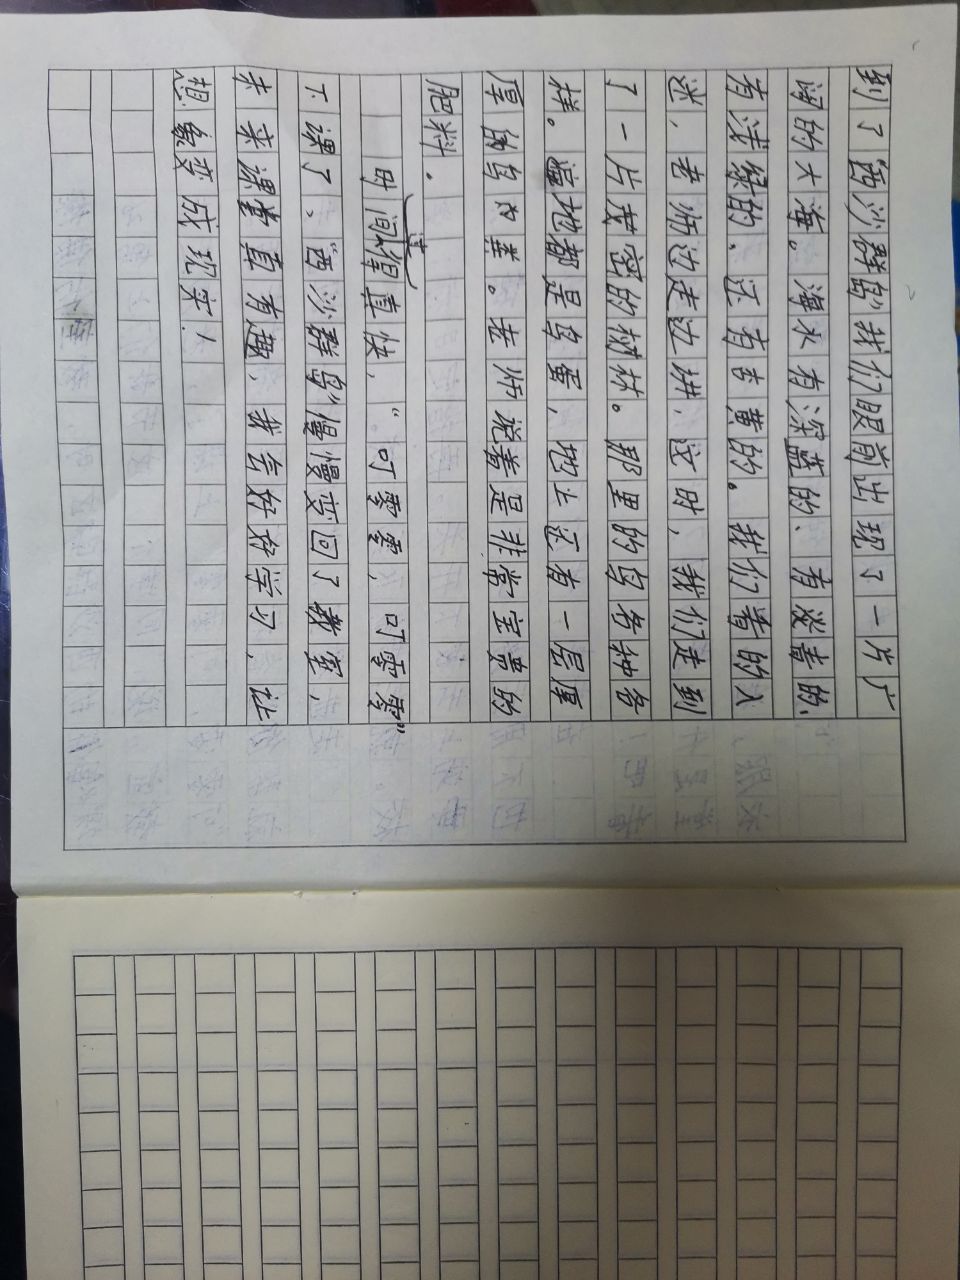 到了“西沙群岛”我们眼前出现了一片广
阔的大海。海水有深蓝的、有淡青的、
有浅绿的、还有杏黄的。我们着的入
迷，老师边走边讲，这时，我们走到
了一片茂密的树林。那里的鸟各种各
样。遍地都是鸟蛋，地上还有一层厚
厚的鸟的粪。老师说着是非常宝贵的
肥料。
时间过得真快，“叮零零，叮零零”
下课了。“西沙群岛”慢慢变回了教室，
未来课堂真有趣、我会好好学习，让
想象变成现实！